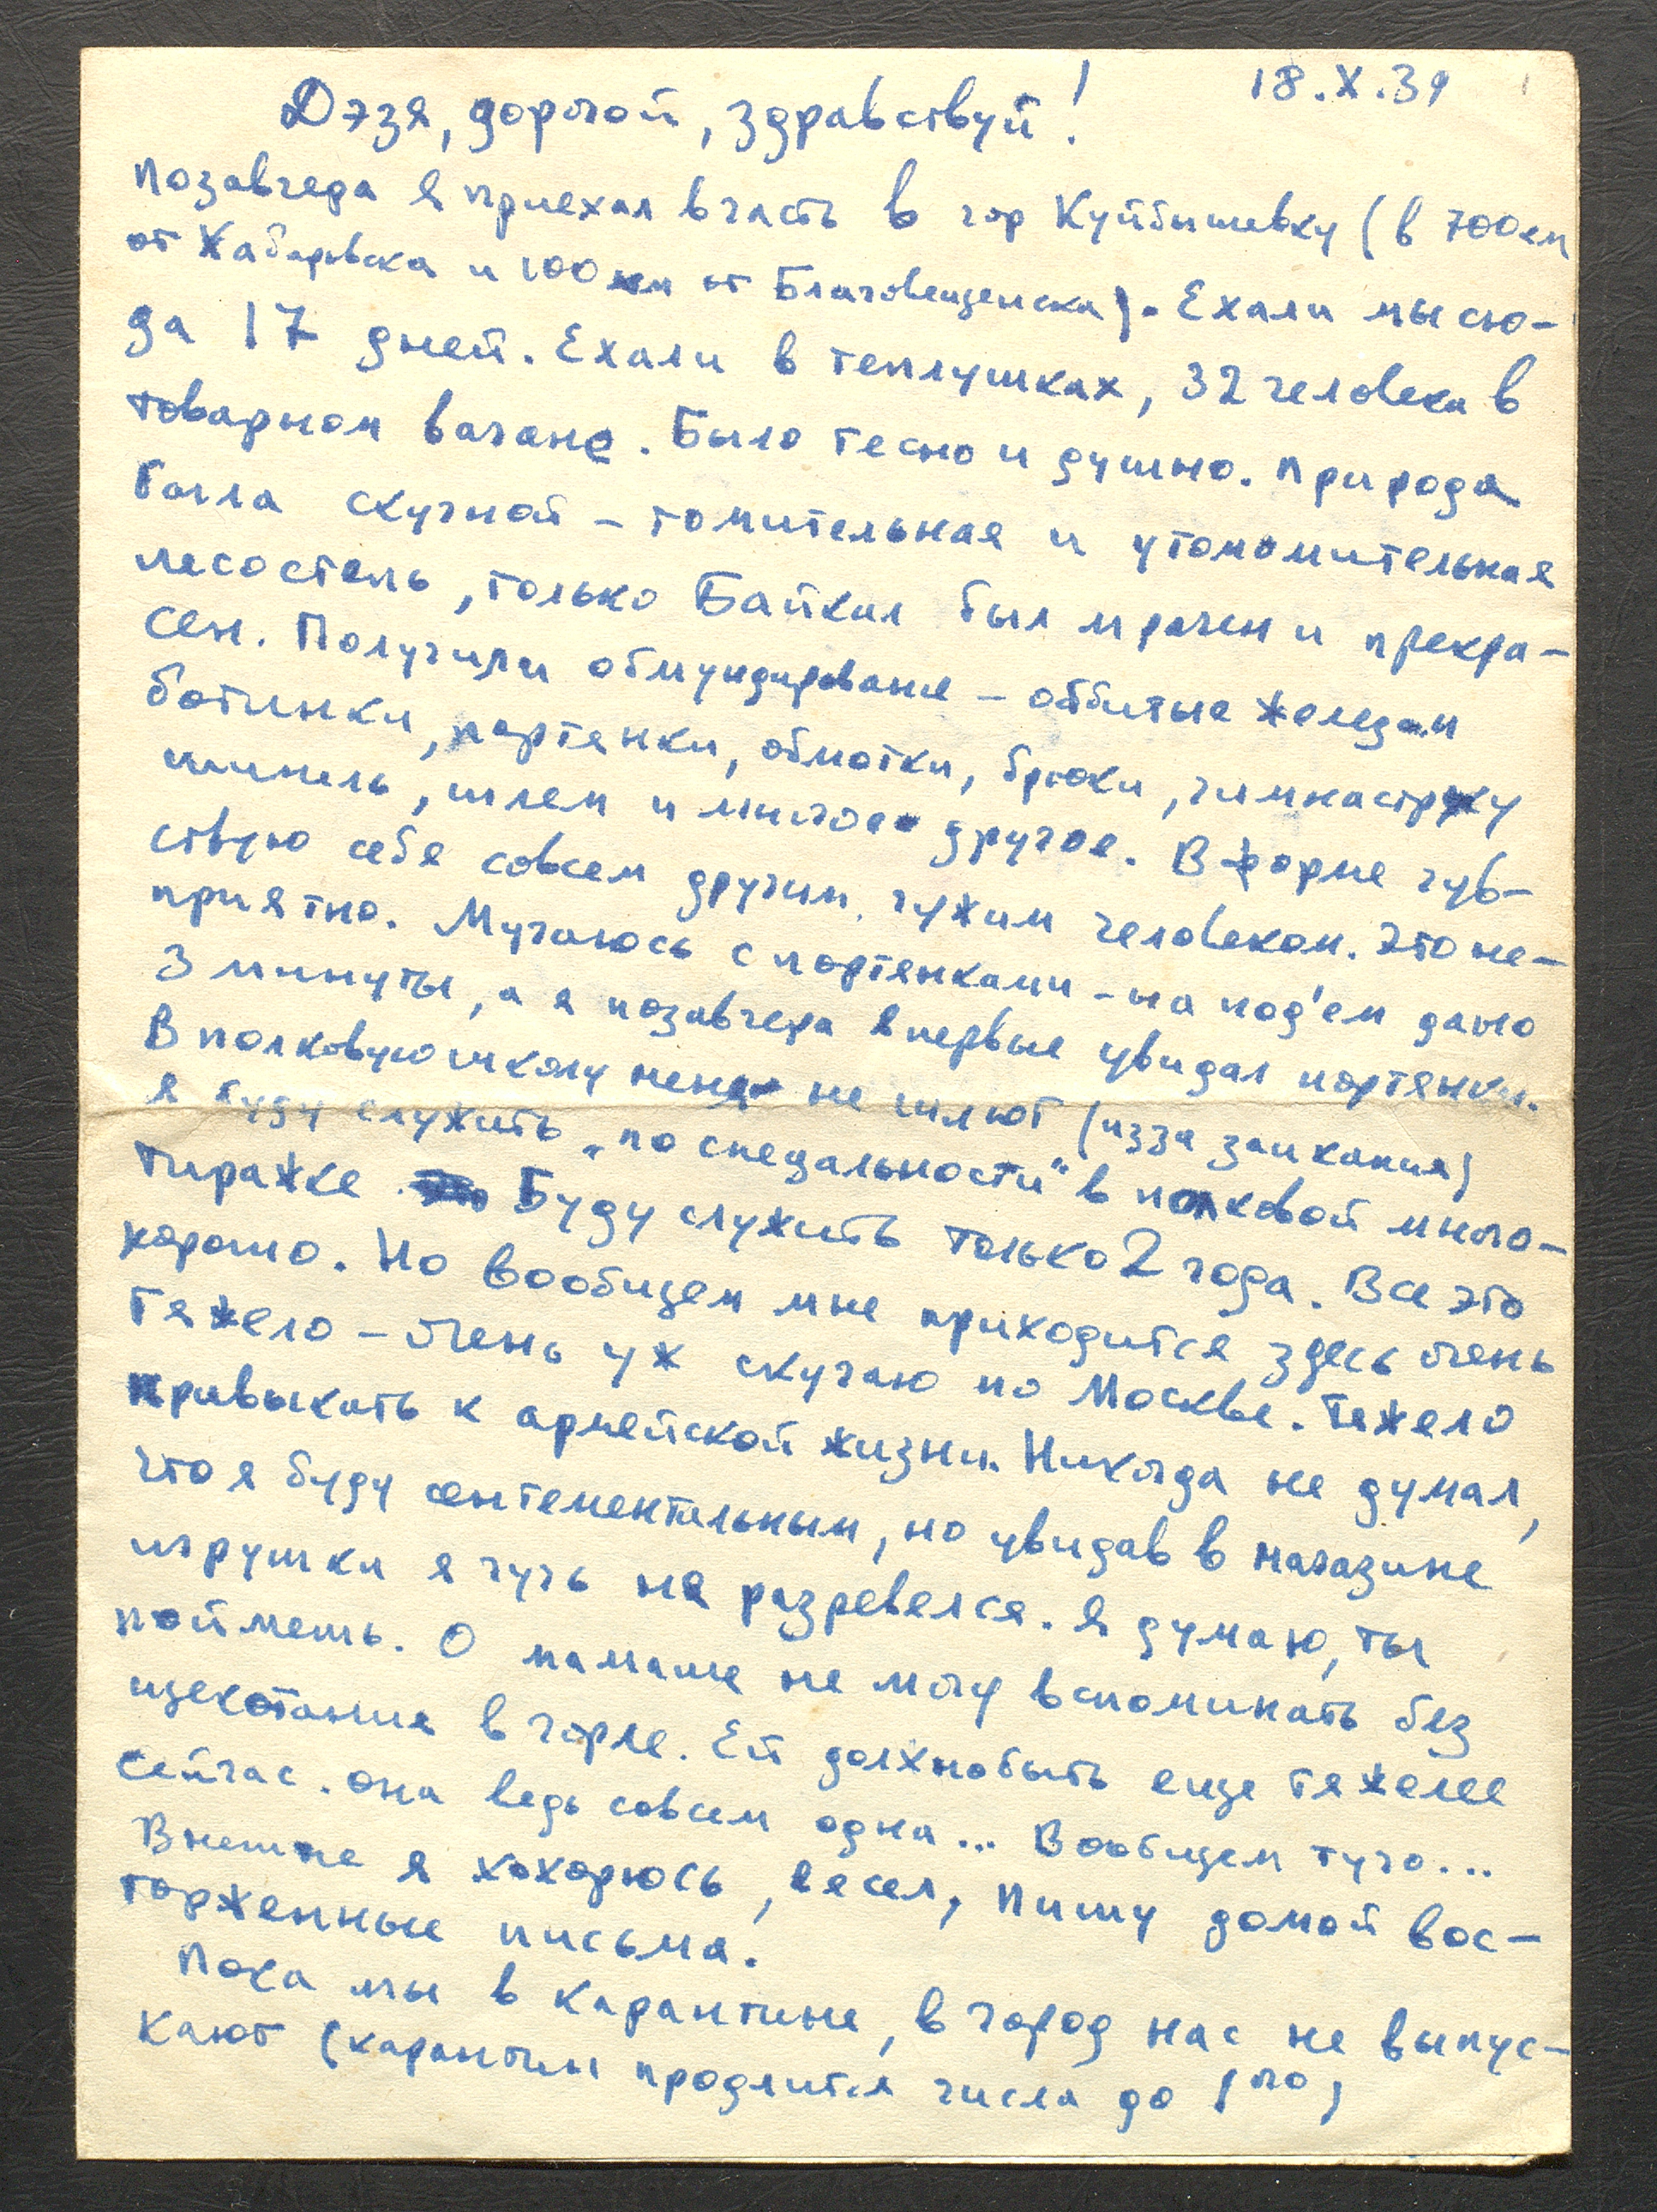 18.X.39
Дэзя, дорогой, здравствуй!
Позавчера я приехал в часть в гор Куйбышевку (в 700 км
от Хабаровска и 100 км от Благовещенска). Ехали мы сю-
да 17 дней. Ехали в теплушках, 32 человека в
товарном вагоне. Было тесно и душно. Природа
была скучной – томительная и утомомительная
лесостепь, только Байкал был мрачен и прекра-
сен. Получили обмундирование – оббитые железом
ботинки, портянки, обмотки, брюки, гимнастрку
шинель, шлем и многое другое. В форме чув-
ствую себя совсем другим, чужим человеком. Это не-
приятно. Мучаюсь с портянками – на под'ем дано
3 минуты, а я позавчера впервые увидал портянки.
В полковую школу меня не шлют (изза заикания)
я буду служить „по спецальности" в полковой много-
тиражке. Буду служить только 2 года. Все это
хорошо. Но вообщем мне приходится здесь очень
тяжело – очень уж скучаю по Москве. Тяжело
привыкать к армейской жизни. Никогда не думал,
что я буду сентементальным, но увидав в магазине
игрушки я чуть не разревелся. Я думаю, ты
поймешь. О мамаше не могу вспоминать без
щекотания в горле. Ей должнобыть еще тяжелее
сейчас. она ведь совсем одна... Вообщем туго...
Внешне я хохорюсь, весел, пишу домой вос-
торженные письма.
Пока мы в карантине, в город нас не выпус-
кают (карантин продлится числа до 1го)